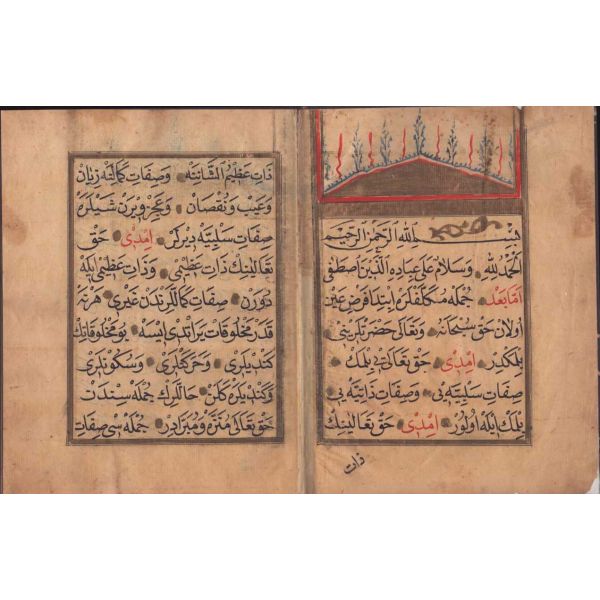 بسم الله الرحمن الرحيم
الحمد لله وسلام على عباده الذين اصطفى
اما بعد جمله مكلفلره ابتدا فرض عين
اولان حق سبحانه وتعالى حضرتلرینی
بلمكدر امدی حق تعالی یی بلمك
صفات سلبیه یی وصفات ذاتیه یی
بلمك ایله اولور امدی حق تعالینك
ذات
ذات عظیم الشاننه وصفات كمالنه زیان
وعیب ونقصان وعجز ویرن شیلره
صفات سلبیه دیرلر امدی حق
تعالینك ذات عظیمی وذات عظیمی ایله
دورن صفات كماللرندن غیری هر نه
قدر مخلوقات یراتدی ایسه بو مخلوقاتك
كندیلری وحركتلری وسكونلری
وكندیلره كلن حاللرك جمله سندن
حق تعالی منزه ومبرادر جمله سی صفات